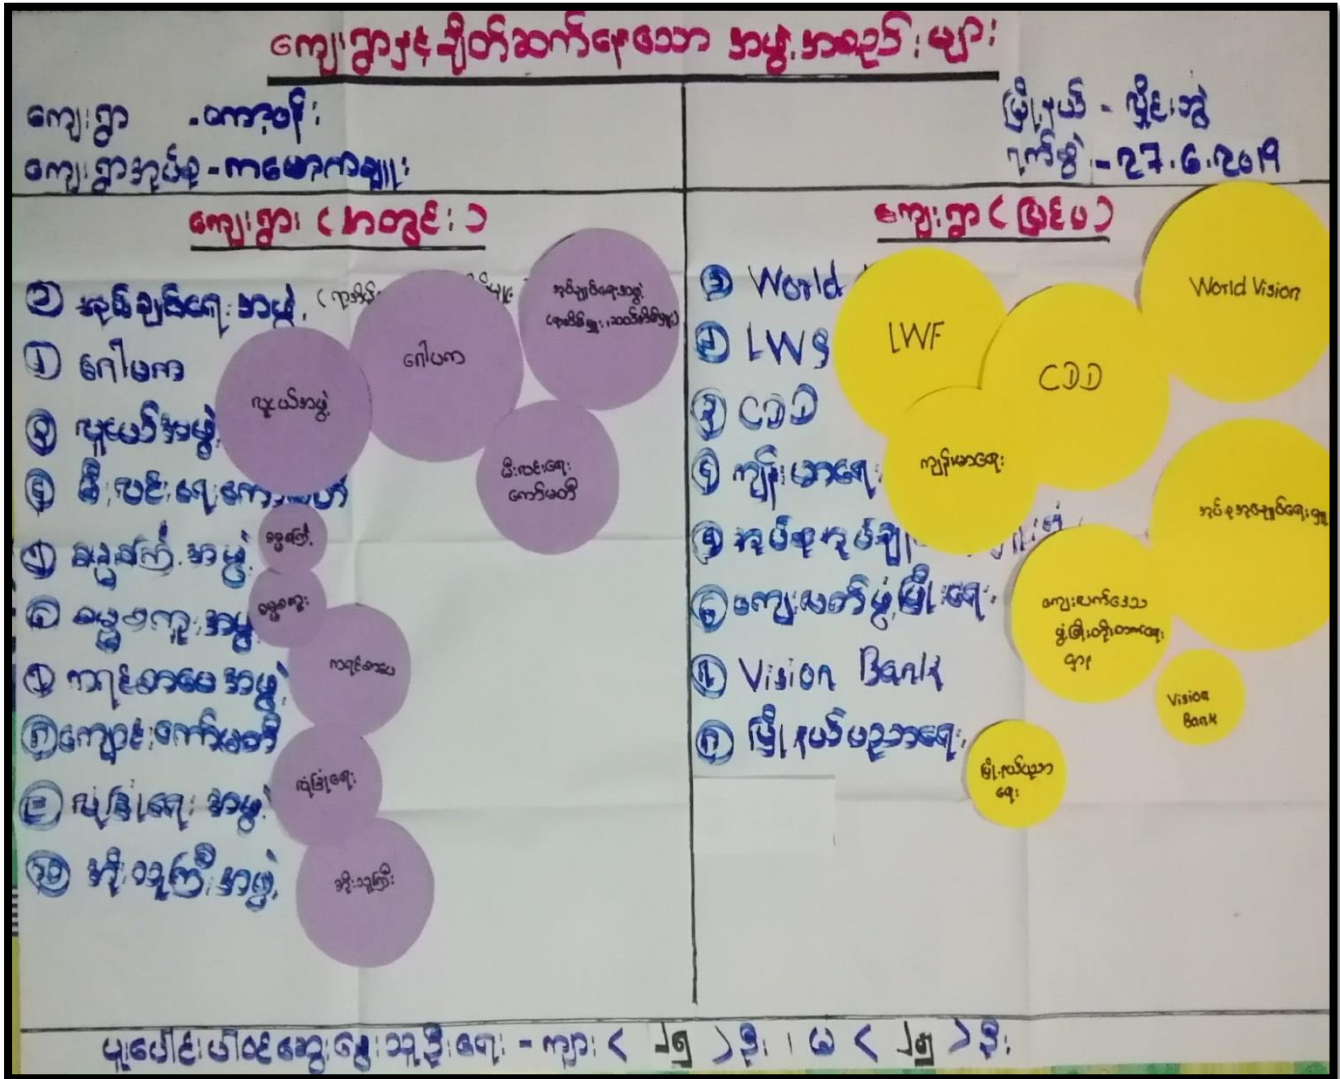 ကျေးရွာနှင့် ချိတ်ဆက်နေသော အဖွဲ့အစည်းများ
ကျေးရွာ - ကော့ဖန်း
ကျေးရွာအုပ်စု - ကမောကချူး
မြို့နယ် - လှိုင်းဘွဲ့
ရက်စွဲ - 27.6.2019
ကျေးရွား (အတွင်း)
၁ အုပ်ချုပ်ရေးအဖွဲ့
၂ ဂေါပက
၃ လူငယ်အဖွဲ့
၄ မီးလင်းရေးကော်မတီ
၅ အဖွဲ့
၆ အဖွဲ့
၇ ကရင်စာပေအဖွဲ့
၈ ကျောင်းကော်မတီ
၉ လုံခြုံရေးအဖွဲ့
၁၀ အိုးသူကြီးအဖွဲ့
အုပ်ချုပ်ရေးအဖွဲ့
ဂေါပက
လူငယ်အဖွဲ့
မီးလင်းရေး
ကော်မတီ
ကရင်စာပေ
လုံခြုံရေး
အိုးသူကြီး
ကျေးရွာ (ပြင်ပ)
၁ World
၂ LWS
၃ CDD
၄ ကျန်းမာရေး
၅ အုပ်စုအုပ်ချု
၆ ကျေးလက်ဖွံ့ဖြိုးရေး
၇ Vision Bank
၈ မြို့နယ်ပညာရေး
World Vision
LWF
CDD
ကျန်းမာရေး
အုပ်စုအုပ်ချုပ်ရေးမှူး
ကျေးလက်ဒေသ
ဖွံ့ဖြိုးတိုးတက်ရေး
ဌာန
Vision
Bank
မြို့နယ်ပညာ
ရေး
ပူးပေါင်းပါဝင်ဆွေးနွေးသူဦးရေ - ကျား < ၂၅ > ဦး ၊ မ < ၂၅ > ဦး